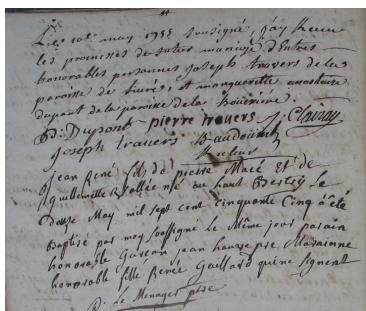 may 1755 soussigné J'ay Receu
les promesses de futur mariage d'Entre
honorables personnes Joseph travers de la
paroisse de et marguerite anastasie
dupont de la paroisse de la bouexiere
Dupont pierre travers
Joseph travers Baudouin
Recteur
Jean René fils de pierre Macé Et de
Guillemette né au haut le
douze May mil sept cent cinquante Cinq a été
Baptisé par moy Soussigné le Même jour parain
honorable Garcon jean marainne
honorable fille Renée Gaillard qui ne signent
Le Menager ptre